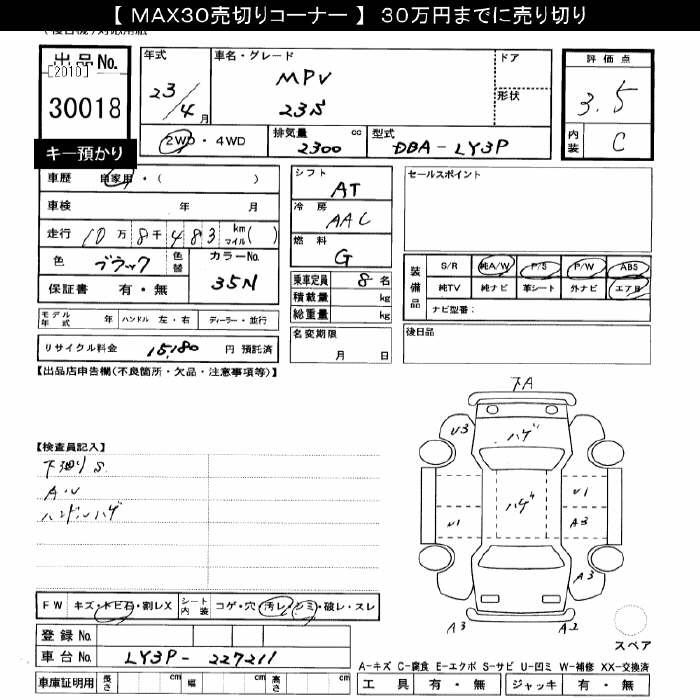 【 MAX30売切りコーナー 】 30万円までに売り切り
出品No.
[2010]
30018
キー預かり
年式
23/4月
車名・グレード
MPV
23S
ドア
形状
評価点
3.5
内装 C
2WD・4WD
排気量 2300 cc
型式 DBA-LY3P
車歴 自家用・( )
車検 年 月
走行 10万8千483 km マイル( )
色 ブラック 色替
カラーNo. 35N
保証書 有・無
モデル年式 年 ハンドル 左・右 ディーラー・並行
リサイクル料金 15,180 円 預託済
シフト
AT
冷房
AAC
燃料
G
乗車定員 8 名
積載量 kg
総重量 kg
名変期限
月 日
セールスポイント
装備品
S/R 純A/W P/S P/W ABS
純TV 純ナビ 革シート 外ナビ エアB
ナビ型番:
後日品
【出品店申告欄(不良箇所・欠品・注意事項等)】
【検査員記入】
下廻りS
A・U
ハンドルハゲ
FW キズ・トビ石・割レX
シート内装 コゲ・穴・汚レ・シミ・破レ・スレ
登録No.
車台No. LY3P-227211
車庫証明用 長さ cm 幅 cm 高さ cm
下A
U3
ハゲ
ハゲ
U1
U1
A3
A3
A3
A2
スペア
A-キズ C-腐食 E-エクボ S-サビ U-凹ミ W-補修 XX-交換済
工具 有・無 ジャッキ 有・無